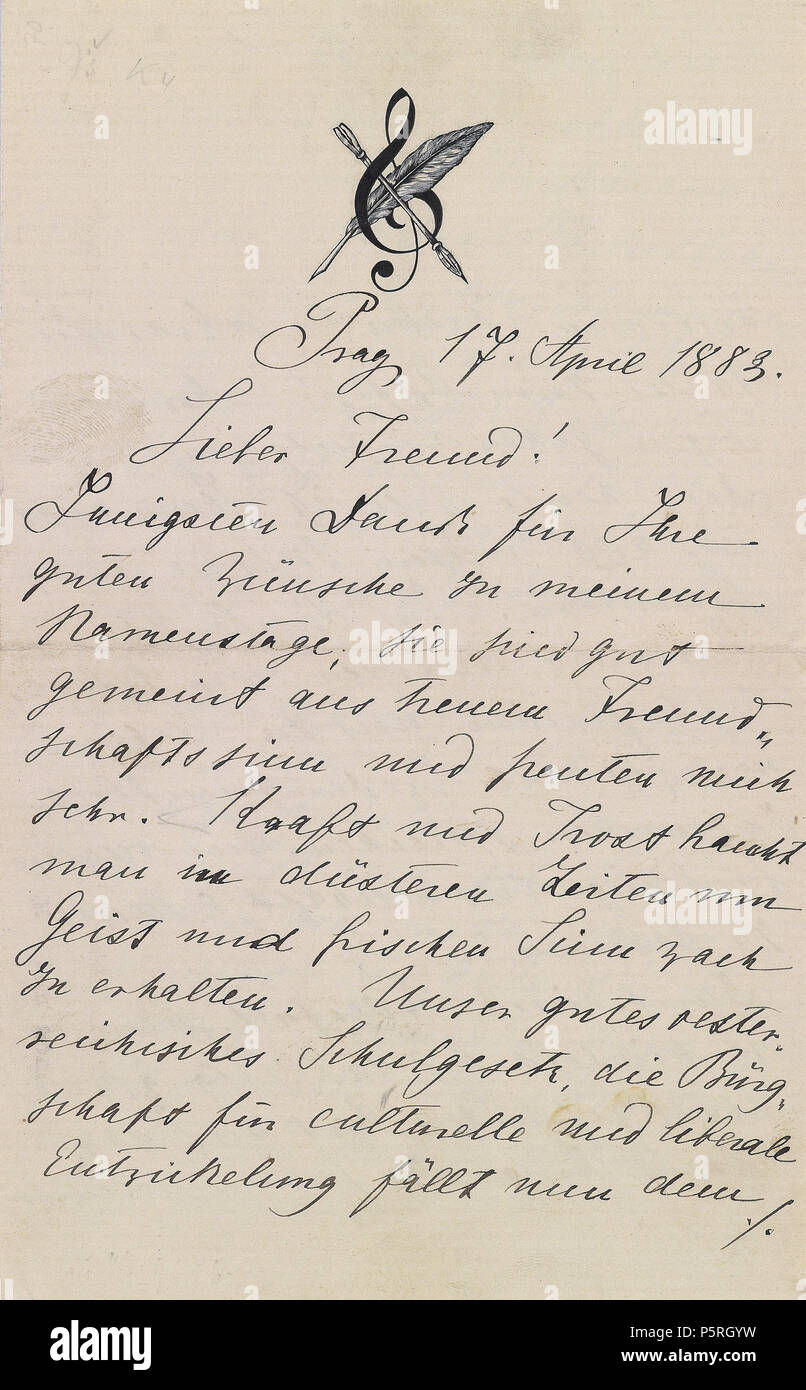 Prag, 17. April 1883.
Lieber Freund!
Innigsten Dank für Ihre
guten Wünsche zu meinem
Namenstage, sie sind gut
gemeint aus treuem Freund„
schaftssinn und freuten mich
sehr. Kraft und Trost braucht
man in düsteren Zeiten um
Geist und frischen Sinn wach
zu erhalten. Unser gutes oester„
reichisches Schulgesetz, die Bürg„
schaft für culturelle und liberale
Entwickelung fällt nun dem
./.
alamy
Image ID: P5RGYW
www.alamy.com